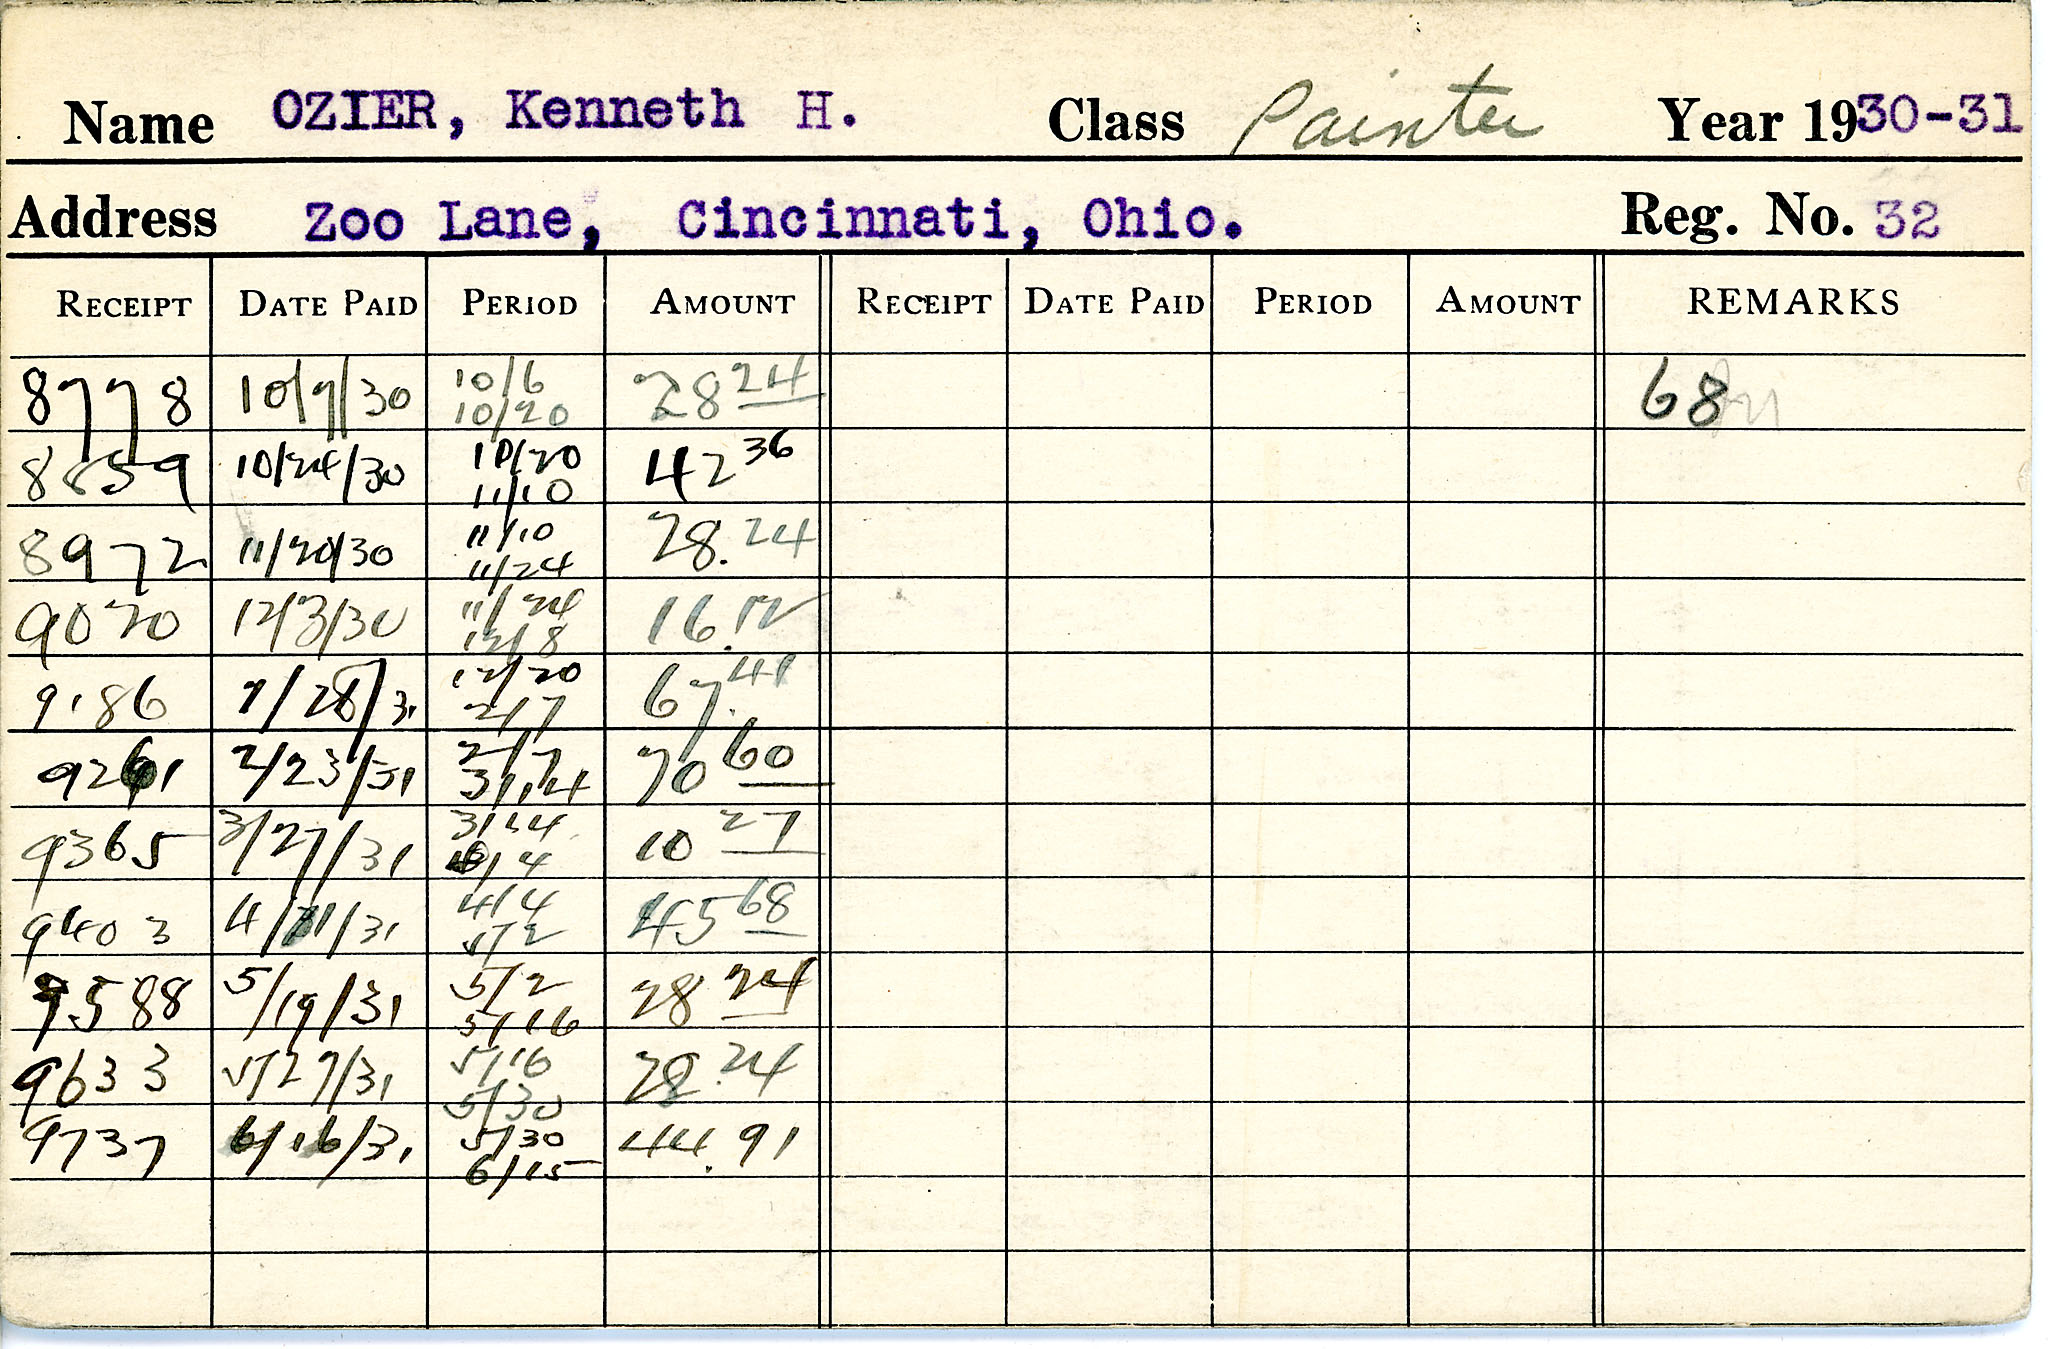 Name OZIER, Kenneth H. Class Painter Year 1930-31
Address Zoo Lane, Cincinnati, Ohio. Reg. No. 32
RECEIPT DATE PAID PERIOD AMOUNT RECEIPT DATE PAID PERIOD AMOUNT REMARKS
8778 10/7/30 10/6 10/20 28 24 68
8859 10/24/30 10/20 11/10 42 36
8972 11/20/30 11/10 11/24 28.24
9070 12/3/30 11/24 12/8 16.12
9186 1/28/31 12/20 2/7 67.41
9261 2/23/31 2/7 3/14 70 60
9365 3/27/31 3/14 4/4 10 27
9403 4/ /31 4/4 5/2 45 68
9588 5/19/31 5/2 5/16 28 24
9633 5/27/31 5/16 5/30 28.24
9737 6/16/31 5/30 6/15 44.91